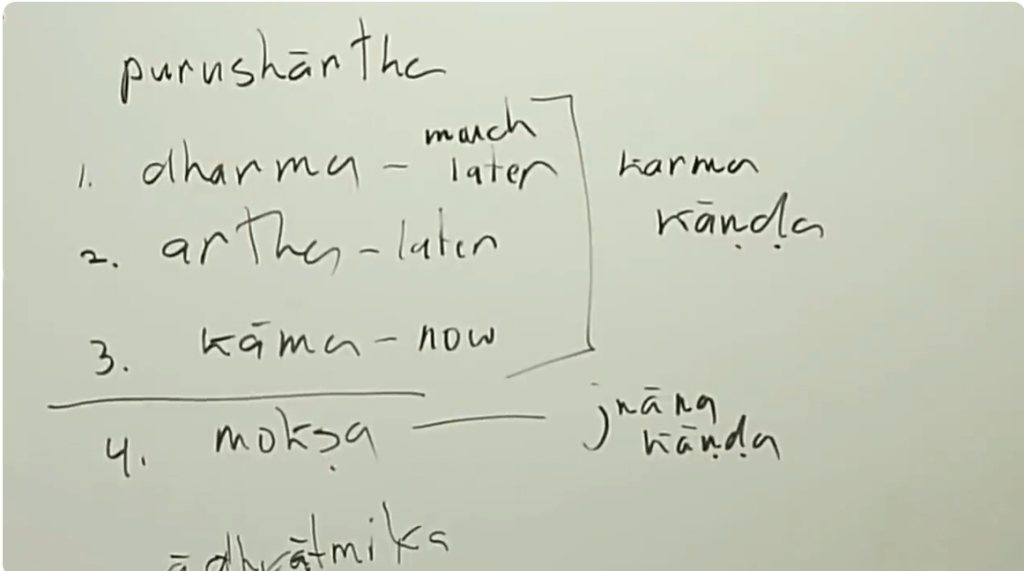 purushārtha
1. dharma - much later
2. artha - later
3. kāma - now
karma kāṇḍa
4. mokṣa — jnāna kāṇḍa
ādhyātmika